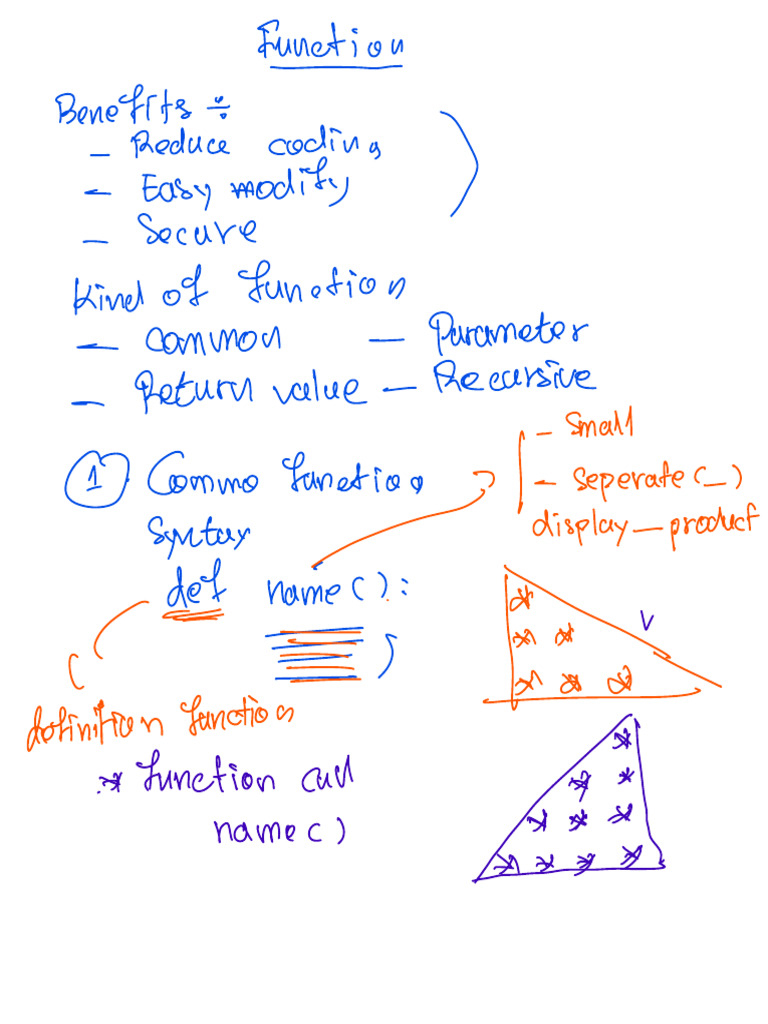 Function
Benefits ÷
- Reduce coding
- Easy modify
- Secure
Kind of function
- Common - Parameter
- Return value - Recursive
- Small
- seperate(_)
display_product
① Commo function
Syntax
def name():
definition function
* function call
name()
*
* *
* * *
V
*
* *
* * *
* * * *